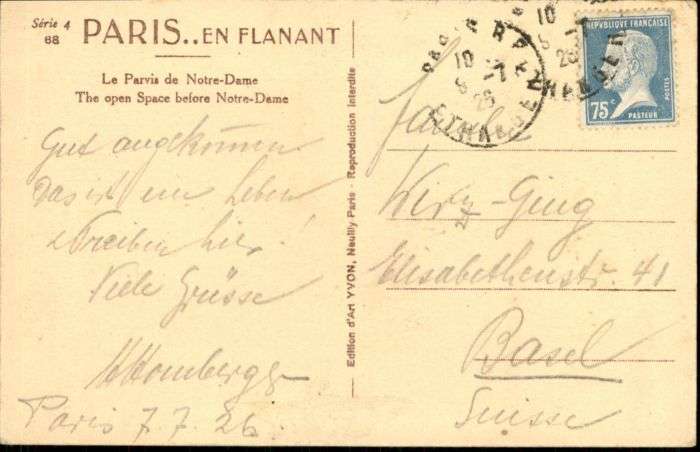 Série 4
68
PARIS.. EN FLANANT
Le Parvis de Notre-Dame
The open Space before Notre-Dame
Gut angekommen
Das ist ein Leben
& Treiben hier!
Viele Grüsse
Paris 7.7.26.
Edition d'Art YVON, Neuilly Paris - Reproduction interdite
REPUBLIQUE FRANÇAISE
POSTES
75c
PASTEUR
10
8 -7
26
10
26
Familie
Wirz-Ging
Elisabethenstr. 41
Basel
Suisse